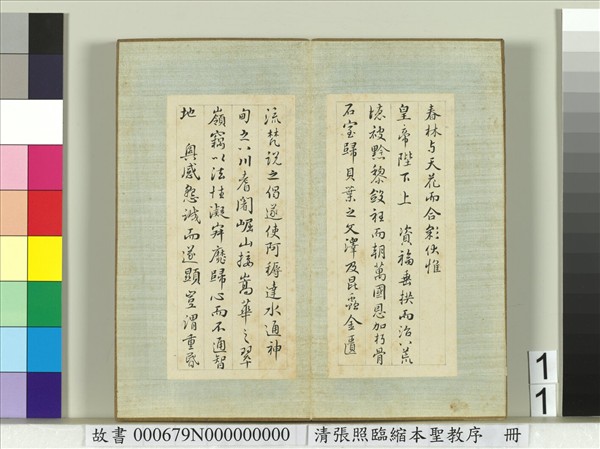 春林与天花而合彩伏惟
皇帝陛下上 資福垂拱而治八荒
德被黔黎斂衽而朝萬國恩加朽骨
石室歸貝葉之文澤及昆蟲金匱
流梵說之偈遂使阿耨達水通神
甸之八川耆闍崛山接嵩華之翠
嶺竊以法性凝寂靡歸心而不通智
地 奧感懇誠而遂顯豈謂重昏
11
故書 000679N000000000 清張照臨縮本聖教序 冊